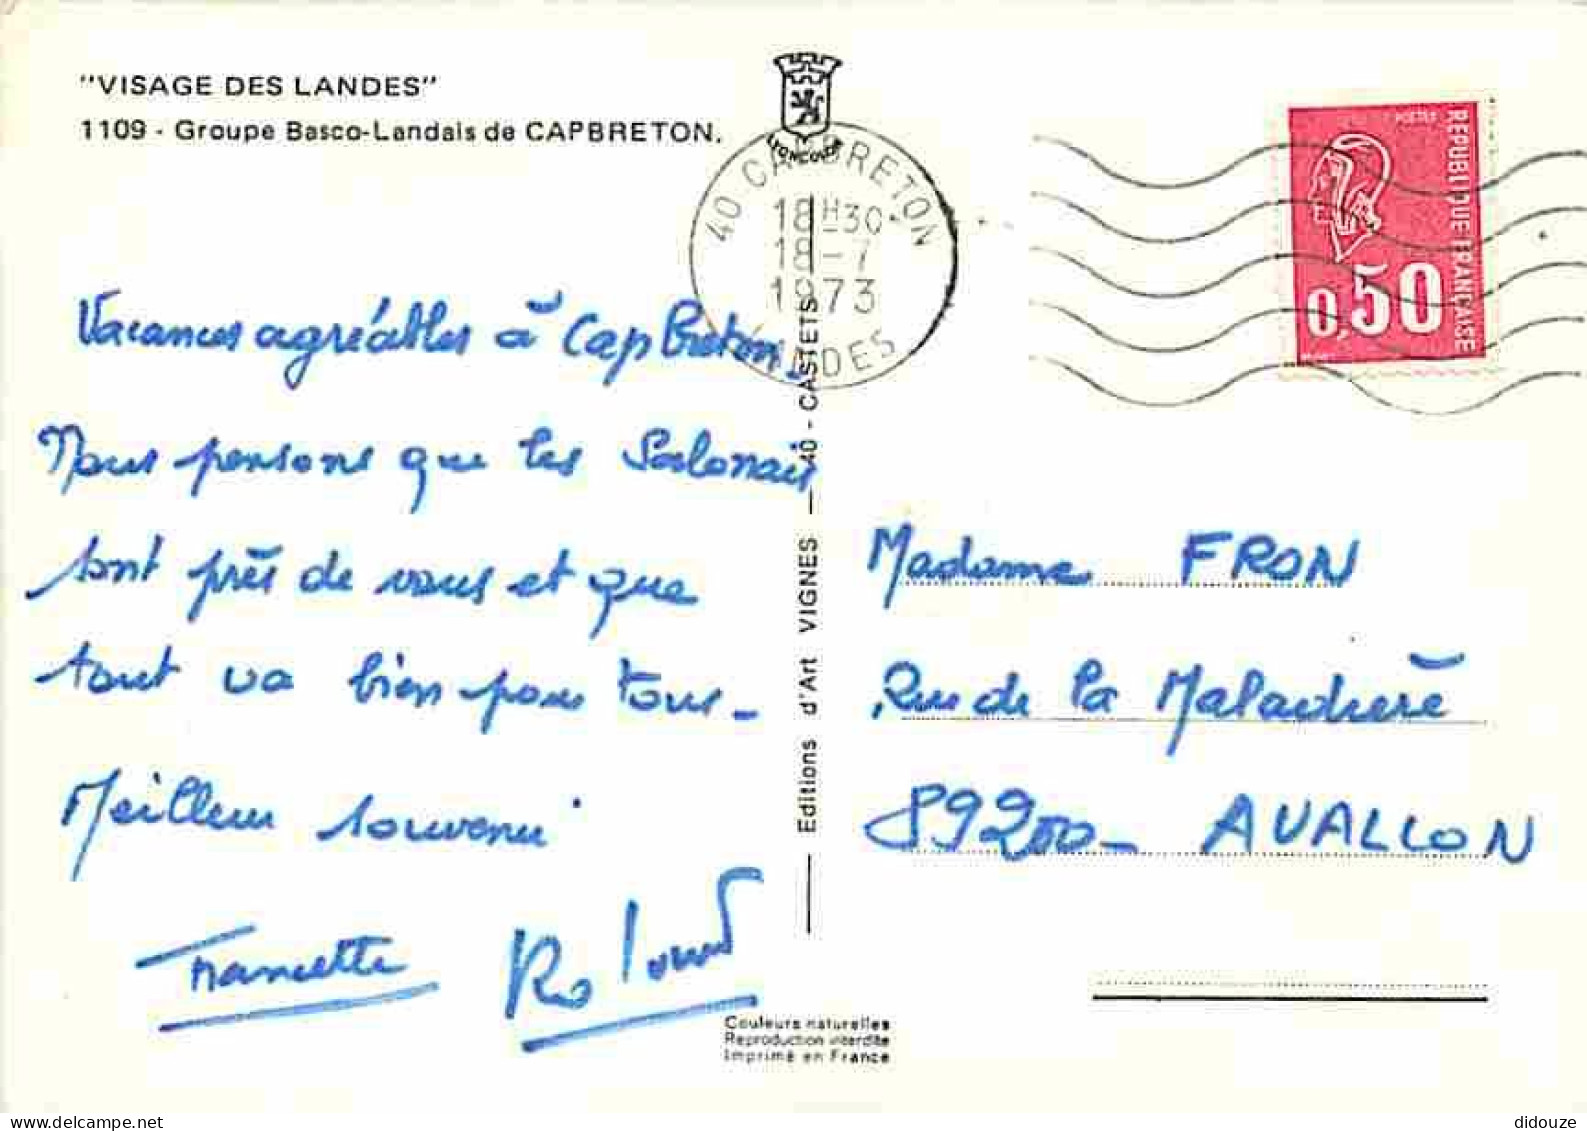 "VISAGE DES LANDES"
1109 - Groupe Basco-Landais de CAPBRETON.
LYONCOLOR
40 CAPBRETON
18H30
18-7
1973
LANDES
POSTES
REPUBLIQUE FRANÇAISE
0,50
Vacances agréables à Cap Breton.
Nous pensons que les Sablonais
sont près de vous et que
tout va bien pour tous_
Meilleur souvenir
Francette Roland
Editions d'Art VIGNES — 40 - CASTETS
Madame FRON
Rue de la Maladière
89200_ AVALLON
Couleurs naturelles
Reproduction interdite
Imprimé en France
didouze